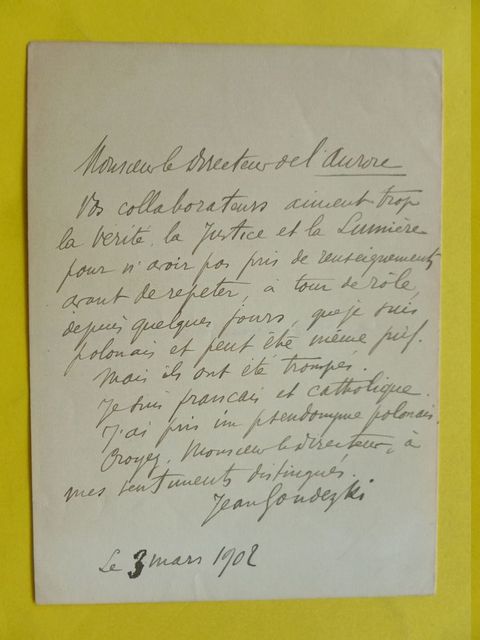 Monsieur le directeur de l'Aurore
Vos collaborateurs aiment trop
la Vérité, la Justice et la Lumière
pour n'avoir pas pris de renseignements
avant de répéter, à tour de rôle,
depuis quelques jours, que je suis
polonais et peut être même juif.
Mais ils ont été trompés.
Je suis français et catholique.
J'ai pris un pseudonyme polonais.
Croyez, Monsieur le directeur, à
mes sentiments distingués.
Jean Goudezki
Le 3 mars 1902